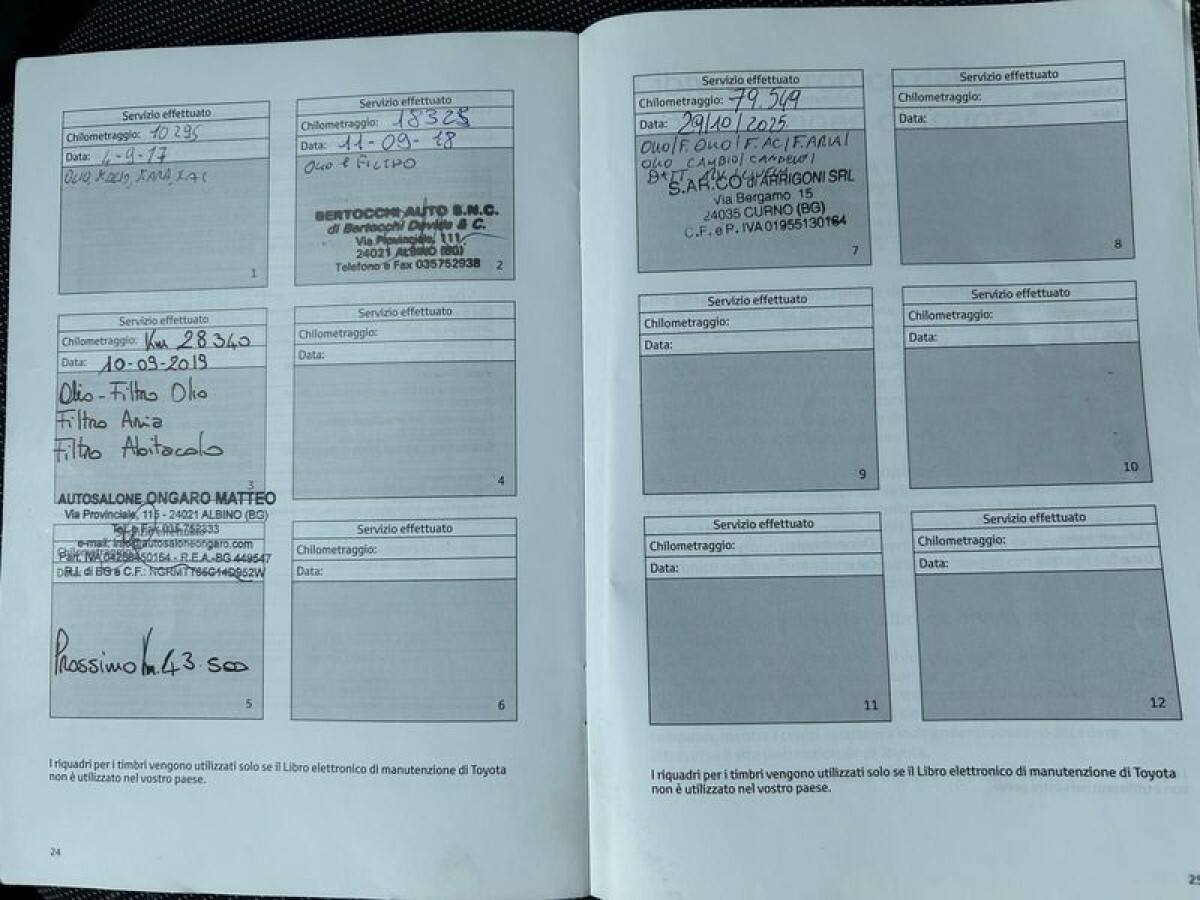 Servizio effettuato
Chilometraggio: 10 295
Data: 4-9-17
OLIO,
1
Servizio effettuato
Chilometraggio: 18325
Data: 11-09-18
OLIO E FILTRO
BERTOCCHI AUTO S.N.C.
di Bertocchi Davide & C.
Via Provinciale, 111
24021 ALBINO (BG)
Telefono e Fax 035752938
2
Servizio effettuato
Chilometraggio: Km 28340
Data: 10-09-2019
Olio - Filtro Olio
Filtro Aria
Filtro Abitacolo
3
AUTOSALONE ONGARO MATTEO
Via Provinciale, 115 - 24021 ALBINO (BG)
Tel. e Fax 035 752333
e-mail: info@autosaloneongaro.com
Part. IVA - R.E.A.-BG 449547
R.I. di BG e C.F.:
Prossimo Km. 43.500
5
Servizio effettuato
Chilometraggio:
Data:
4
Servizio effettuato
Chilometraggio:
Data:
6
I riquadri per i timbri vengono utilizzati solo se il Libro elettronico di manutenzione di Toyota
non è utilizzato nel vostro paese.
24
Servizio effettuato
Chilometraggio: 79.549
Data: 29/10/2025
OLIO/F. OLIO/F. AC/F. ARIA/
OLIO CAMBIO/CANDELE/
S.AR.CO di ARRIGONI SRL
Via Bergamo 15
24035 CURNO (BG)
C.F. e P. IVA 01955130164
7
Servizio effettuato
Chilometraggio:
Data:
8
Servizio effettuato
Chilometraggio:
Data:
9
Servizio effettuato
Chilometraggio:
Data:
10
Servizio effettuato
Chilometraggio:
Data:
11
Servizio effettuato
Chilometraggio:
Data:
12
I riquadri per i timbri vengono utilizzati solo se il Libro elettronico di manutenzione di Toyota
non è utilizzato nel vostro paese.
25